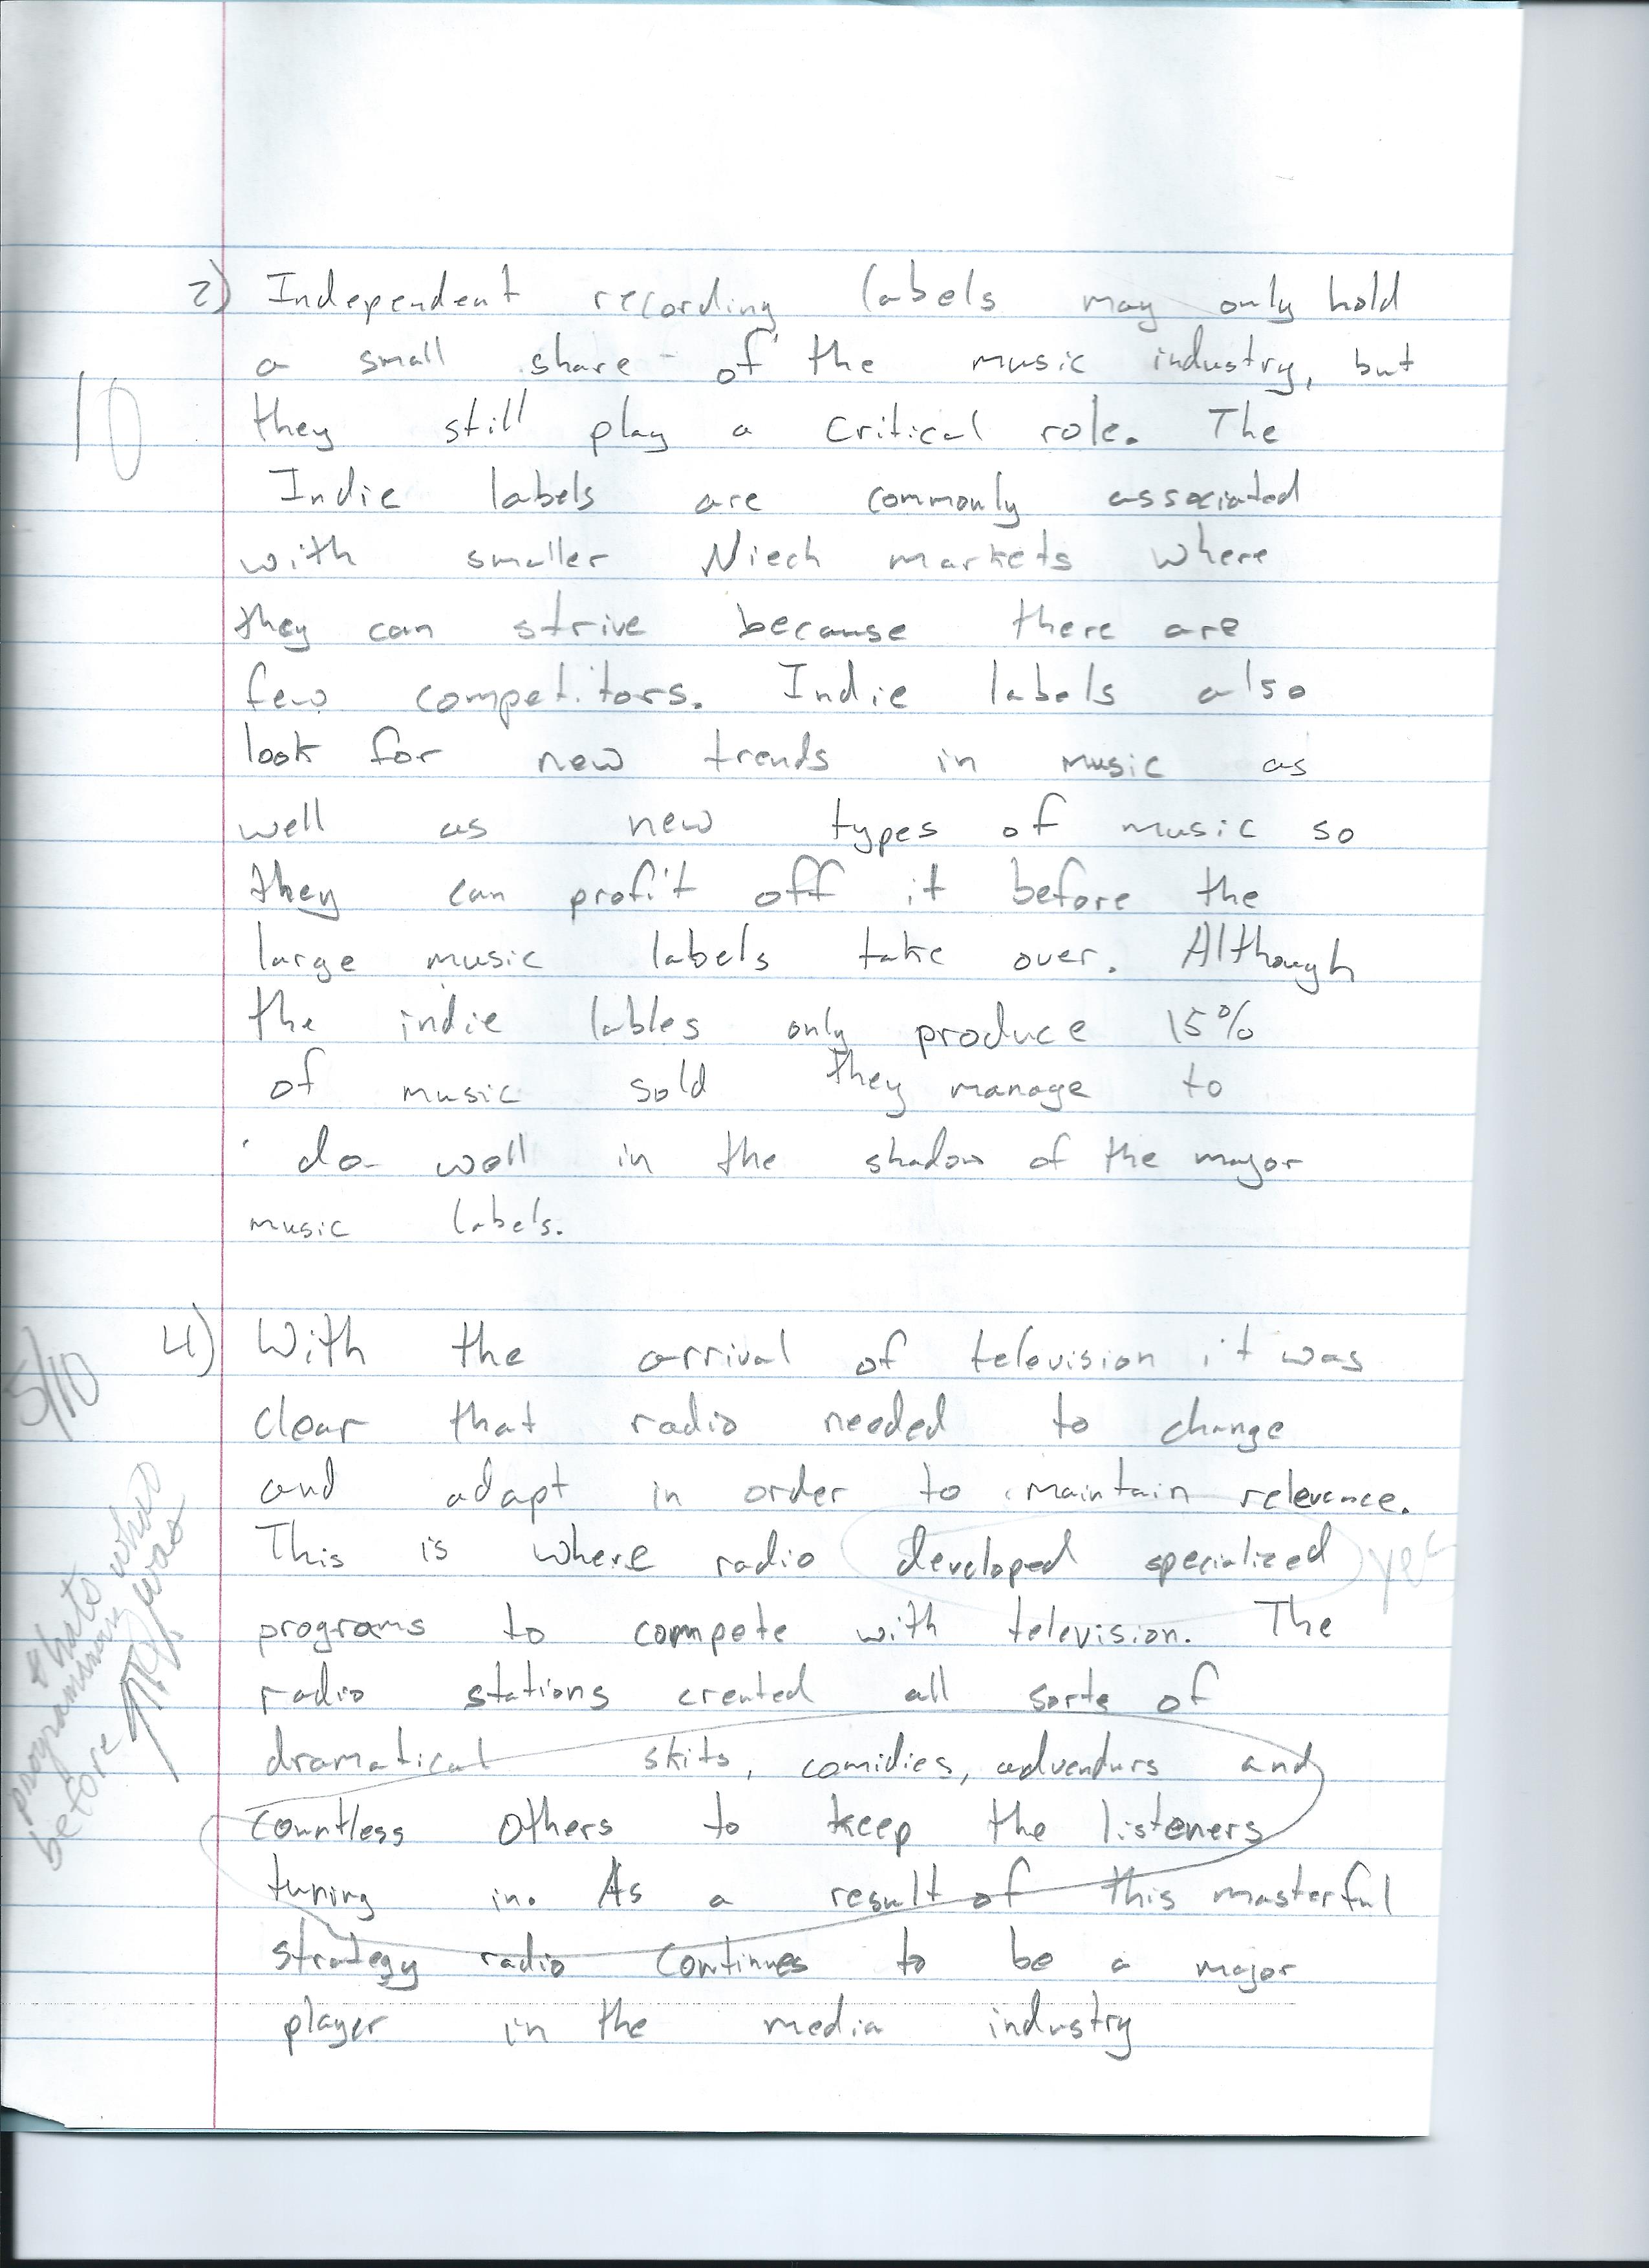 2) Independent recording labels may only hold
a small share of the music industry, but
10
they still play a critical role. The
Indie labels are commonly associated
with smaller Niech markets where
they can strive because there are
few competitors. Indie labels also
look for new trends in music as
well as new types of music so
they can profit off it before the
large music labels take over. Although
the indie lables only produce 15%
of music sold they manage to
do well in the shadow of the major
music labels.
4) With the arrival of television it was
5/10
clear that radio needed to change
and adapt in order to maintain relevence.
This is where radio developed specialized yes
programs to compete with television. The
radio stations created all sorts of
dramatical skits, comidies, adventurs and
countless others to keep the listeners
tuning in. As a result of this masterful
strategy radio continues to be a major
player in the media industry
thats what
programming was
before TV.